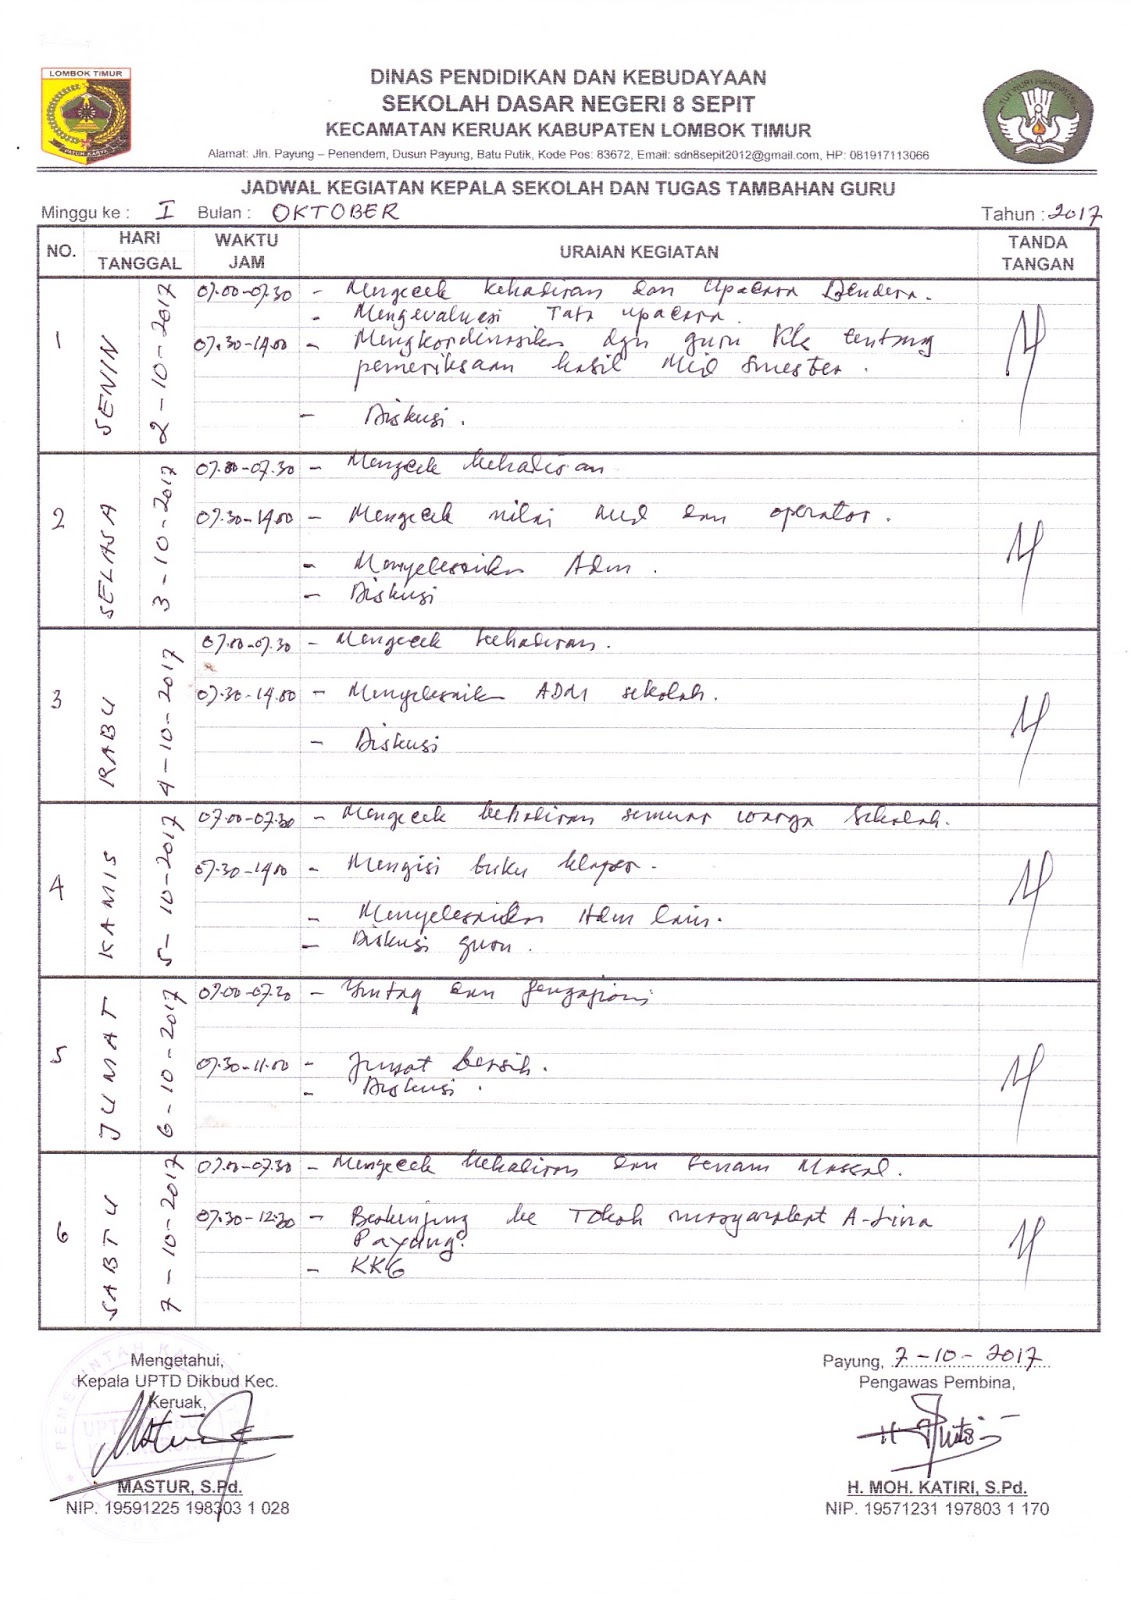 LOMBOK TIMUR
DINAS PENDIDIKAN DAN KEBUDAYAAN
SEKOLAH DASAR NEGERI 8 SEPIT
KECAMATAN KERUAK KABUPATEN LOMBOK TIMUR
Alamat: Jln. Payung – Penendem, Dusun Payung, Batu Putik, Kode Pos: 83672, Email: sdn8sepit2012@gmail.com, HP: 081917113066
JADWAL KEGIATAN KEPALA SEKOLAH DAN TUGAS TAMBAHAN GURU
Minggu ke : I Bulan : OKTOBER Tahun : 2017
NO. HARI TANGGAL WAKTU JAM URAIAN KEGIATAN TANDA TANGAN
1 SENIN 2-10-2017
07.00-07.30 - Mengecek kehadiran dan Upacara Bendera.
- Mengevaluasi Tata upacara.
07.30-14.00 - Mengkordinasikan dgn guru Kls tentang
pemeriksaan hasil Mid Smester.
- Diskusi.
2 SELASA 3-10-2017
07.00-07.30 - Mengecek kehadiran
07.30-14.00 - Mengecek nilai Mid dan operator.
- Menyelesaikan Adm.
- Diskusi
3 RABU 4-10-2017
07.00-07.30 - Mengecek kehadiran.
07.30-14.00 - Menyelesaikan ADM sekolah.
- Diskusi
4 KAMIS 5-10-2017
07.00-07.30 - Mengecek kehadiran semua warga Sekolah.
07.30-14.00 - Mengisi buku klaper.
- Menyelesaikan Adm lain.
- Diskusi guru.
5 JUMAT 6-10-2017
07.00-07.30 - Imtaq dan
07.30-11.00 - Jumat bersih.
- Diskusi.
6 SABTU 7-10-2017
07.00-07.30 - Mengecek kehadiran dan Senam Massal.
07.30-12.30 - Berkunjung ke Tokoh masyarakat
Payung.
- KKG
Mengetahui,
Kepala UPTD Dikbud Kec.
Keruak,
MASTUR, S.Pd.
NIP. 19591225 198303 1 028
Payung, 7-10-2017
Pengawas Pembina,
H. MOH. KATIRI, S.Pd.
NIP. 19571231 197803 1 170